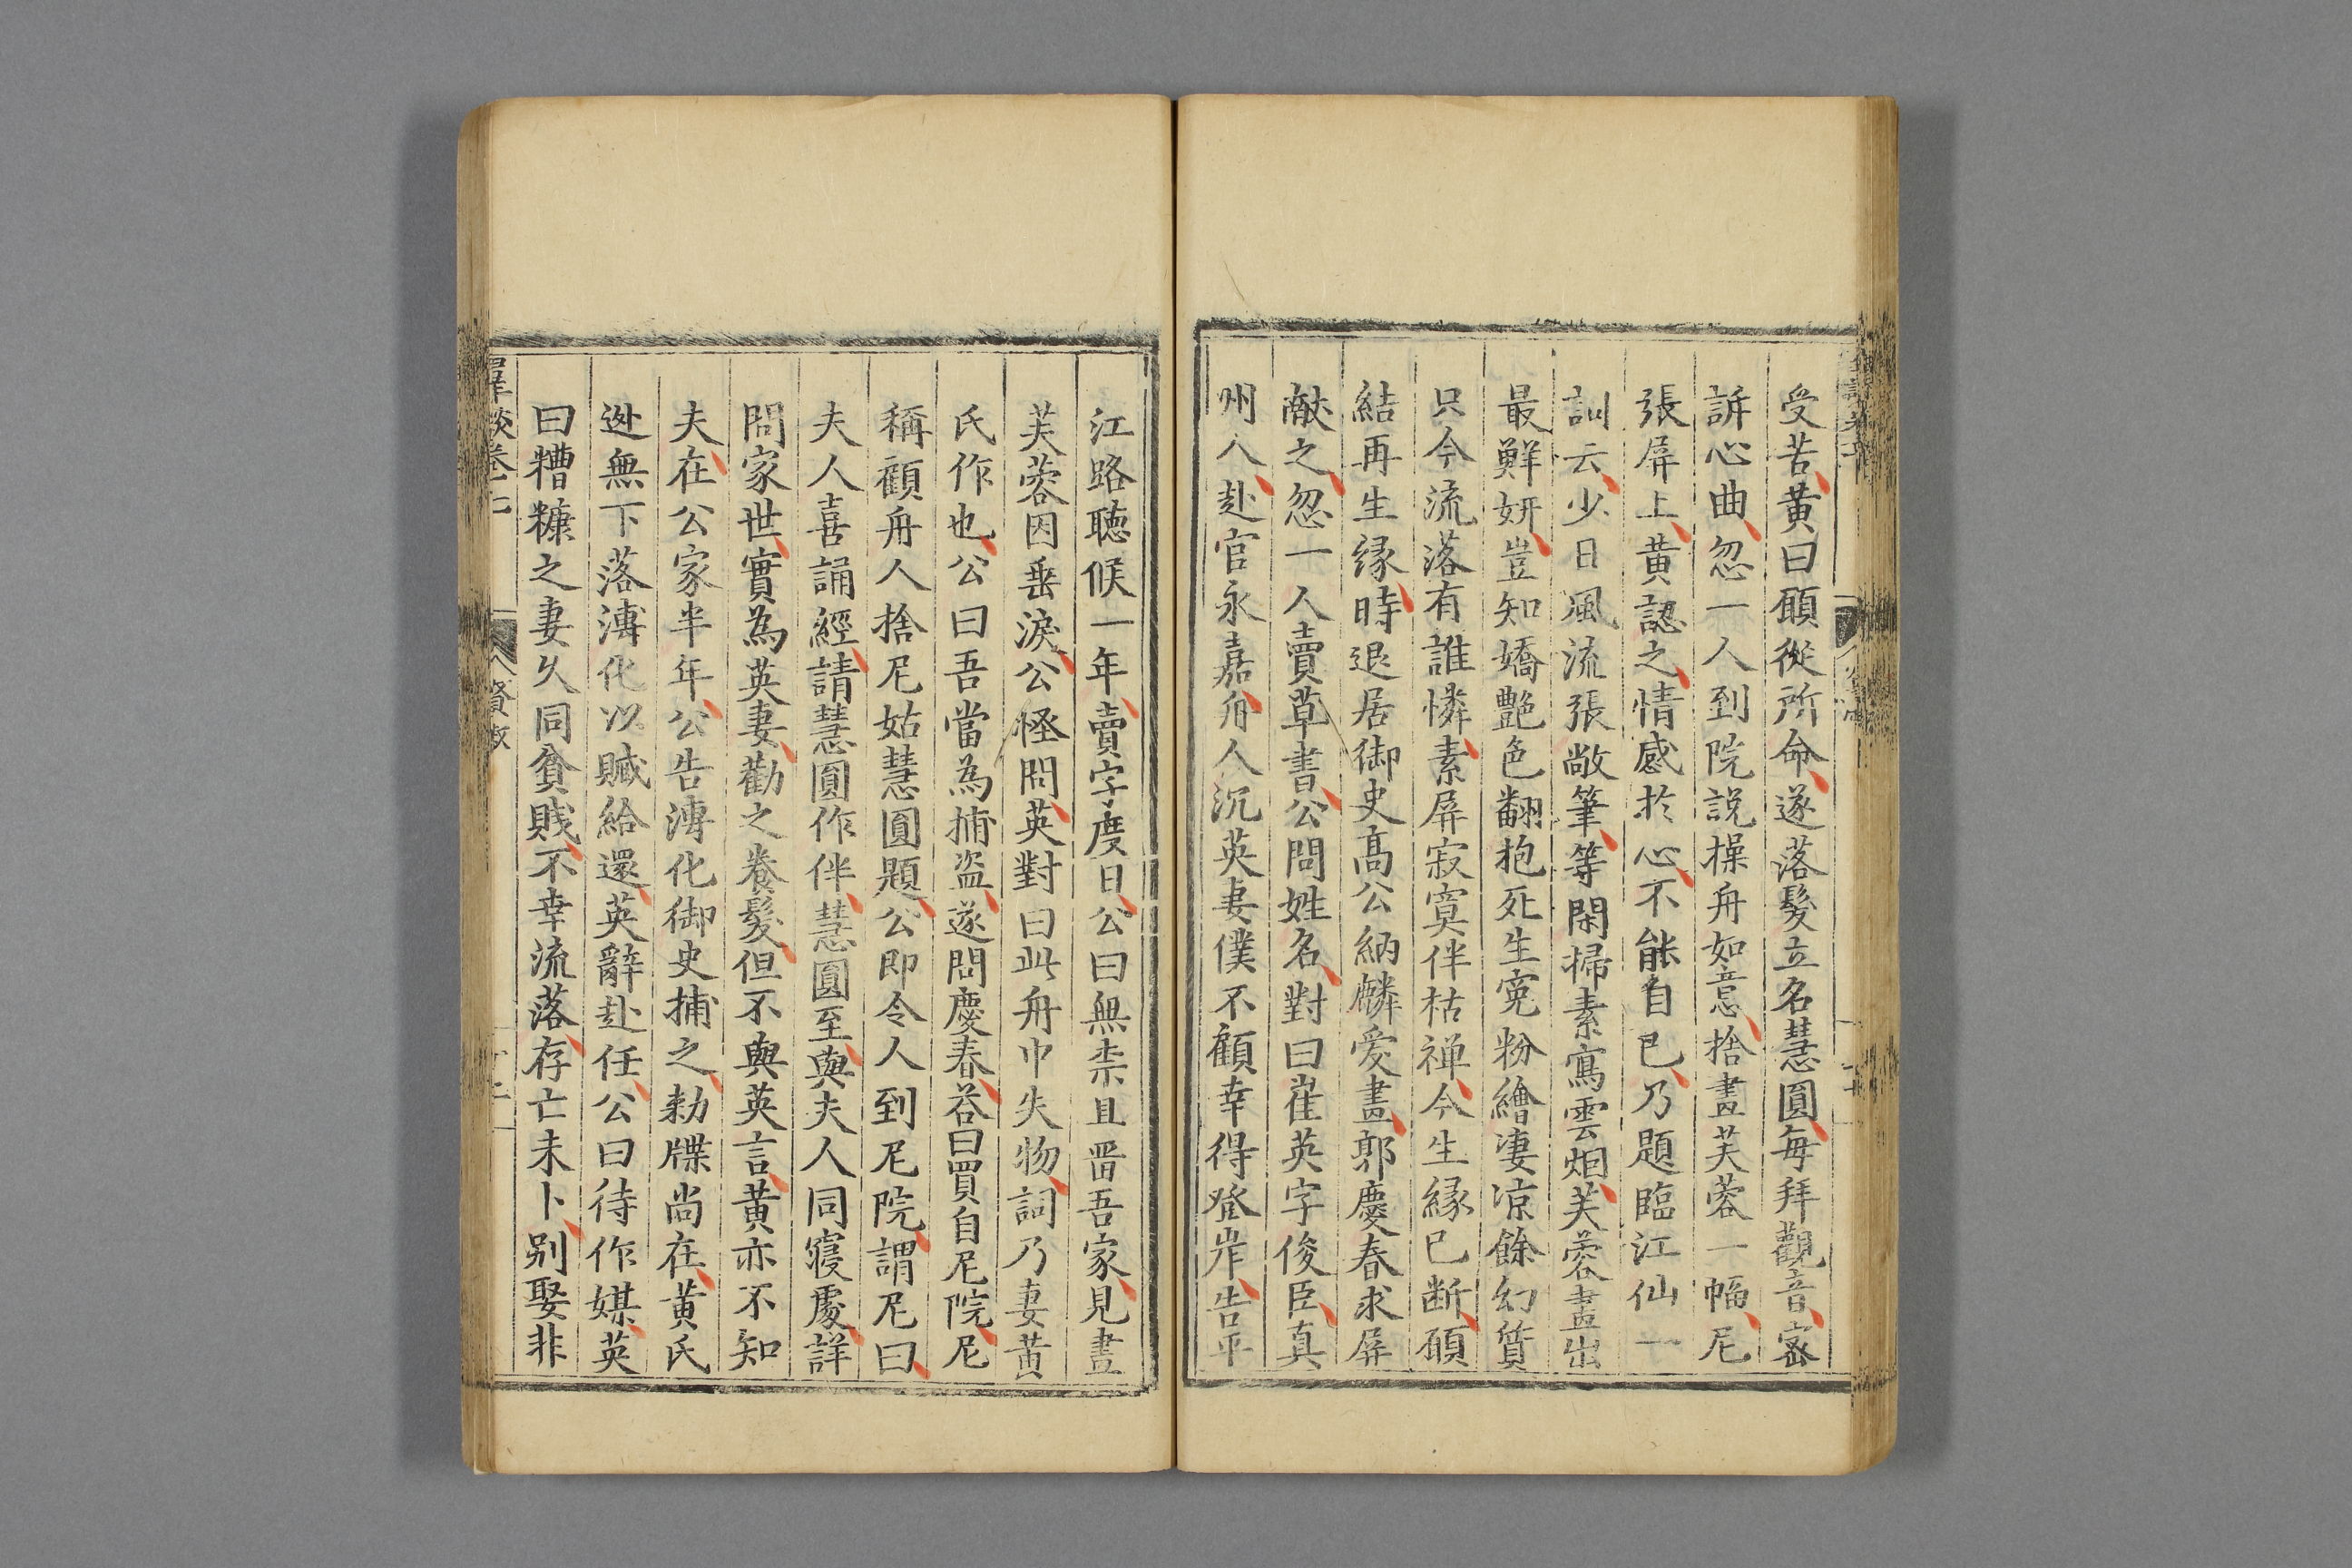 受苦黄曰願從所命遂落髮立名慧圓每拜觀音密
訴心曲忽一人到院說操舟如意捨畫芙蓉一幅尼
張屏上黄認之情感於心不能自已乃題臨江仙一
訓云少日風流張敞筆等閑掃素寫雲烟芙蓉畫出
最鮮妍豈知嬌艷色翻抱死生寃粉繪凄凉餘幻質
只今流落有誰憐素屏寂寞伴枯禅今生緣已断願
結再生縁時退居御史髙公納麟愛畫郭慶春求屏
献之忽一人賣草書公問姓名對曰崔英字俊臣真
州人赴官永嘉舟人沉英妻僕不顧幸得登岸告平
江路聴候一年賣字度日公曰無柰且畱吾家見畫
芙蓉因垂淚公怪問英對曰此舟中失物詞乃妻黄
氏作也公曰吾當為捕盗遂問慶春荅曰買自尼院尼
稱顧舟人捨尼姑慧圓題公即令人到尼院謂尼曰
夫人喜誦經請慧圓作伴慧圓至與夫人同寝處詳
問家世實為英妻勸之養髮但不與英言黄亦不知
夫在公家半年公告溥化御史捕之勑牒尚在黄氏
逊無下落溥化以贓給還英辭赴任公曰待作媒英
曰糟糠之妻久同貧賎不幸流落存亡未卜别娶非
卷七